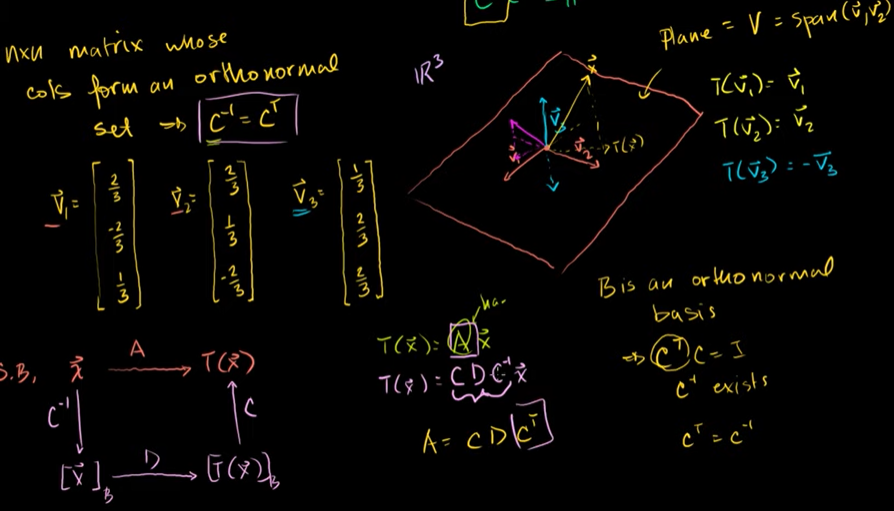 n×n matrix whose
cols form an orthonormal
set ⇒ C⁻¹ = Cᵀ
v⃗₁ = [2/3, -2/3, 1/3] v⃗₂ = [2/3, 1/3, -2/3] v⃗₃ = [1/3, 2/3, 2/3]
C
ℝ³
x⃗
v⃗₃
v⃗₂
T(x⃗)
Plane = V = span(v⃗₁, v⃗₂)
T(v⃗₁) = v⃗₁
T(v⃗₂) = v⃗₂
T(v⃗₃) = -v⃗₃
S.B.
x⃗ A T(x⃗)
C⁻¹ C
[x⃗]_B D [T(x⃗)]_B
T(x⃗) = A x⃗
T(x⃗) = C D C⁻¹ x⃗
A = C D Cᵀ
B is an orthonormal
basis
⇒ Cᵀ C = I
C⁻¹ exists
Cᵀ = C⁻¹